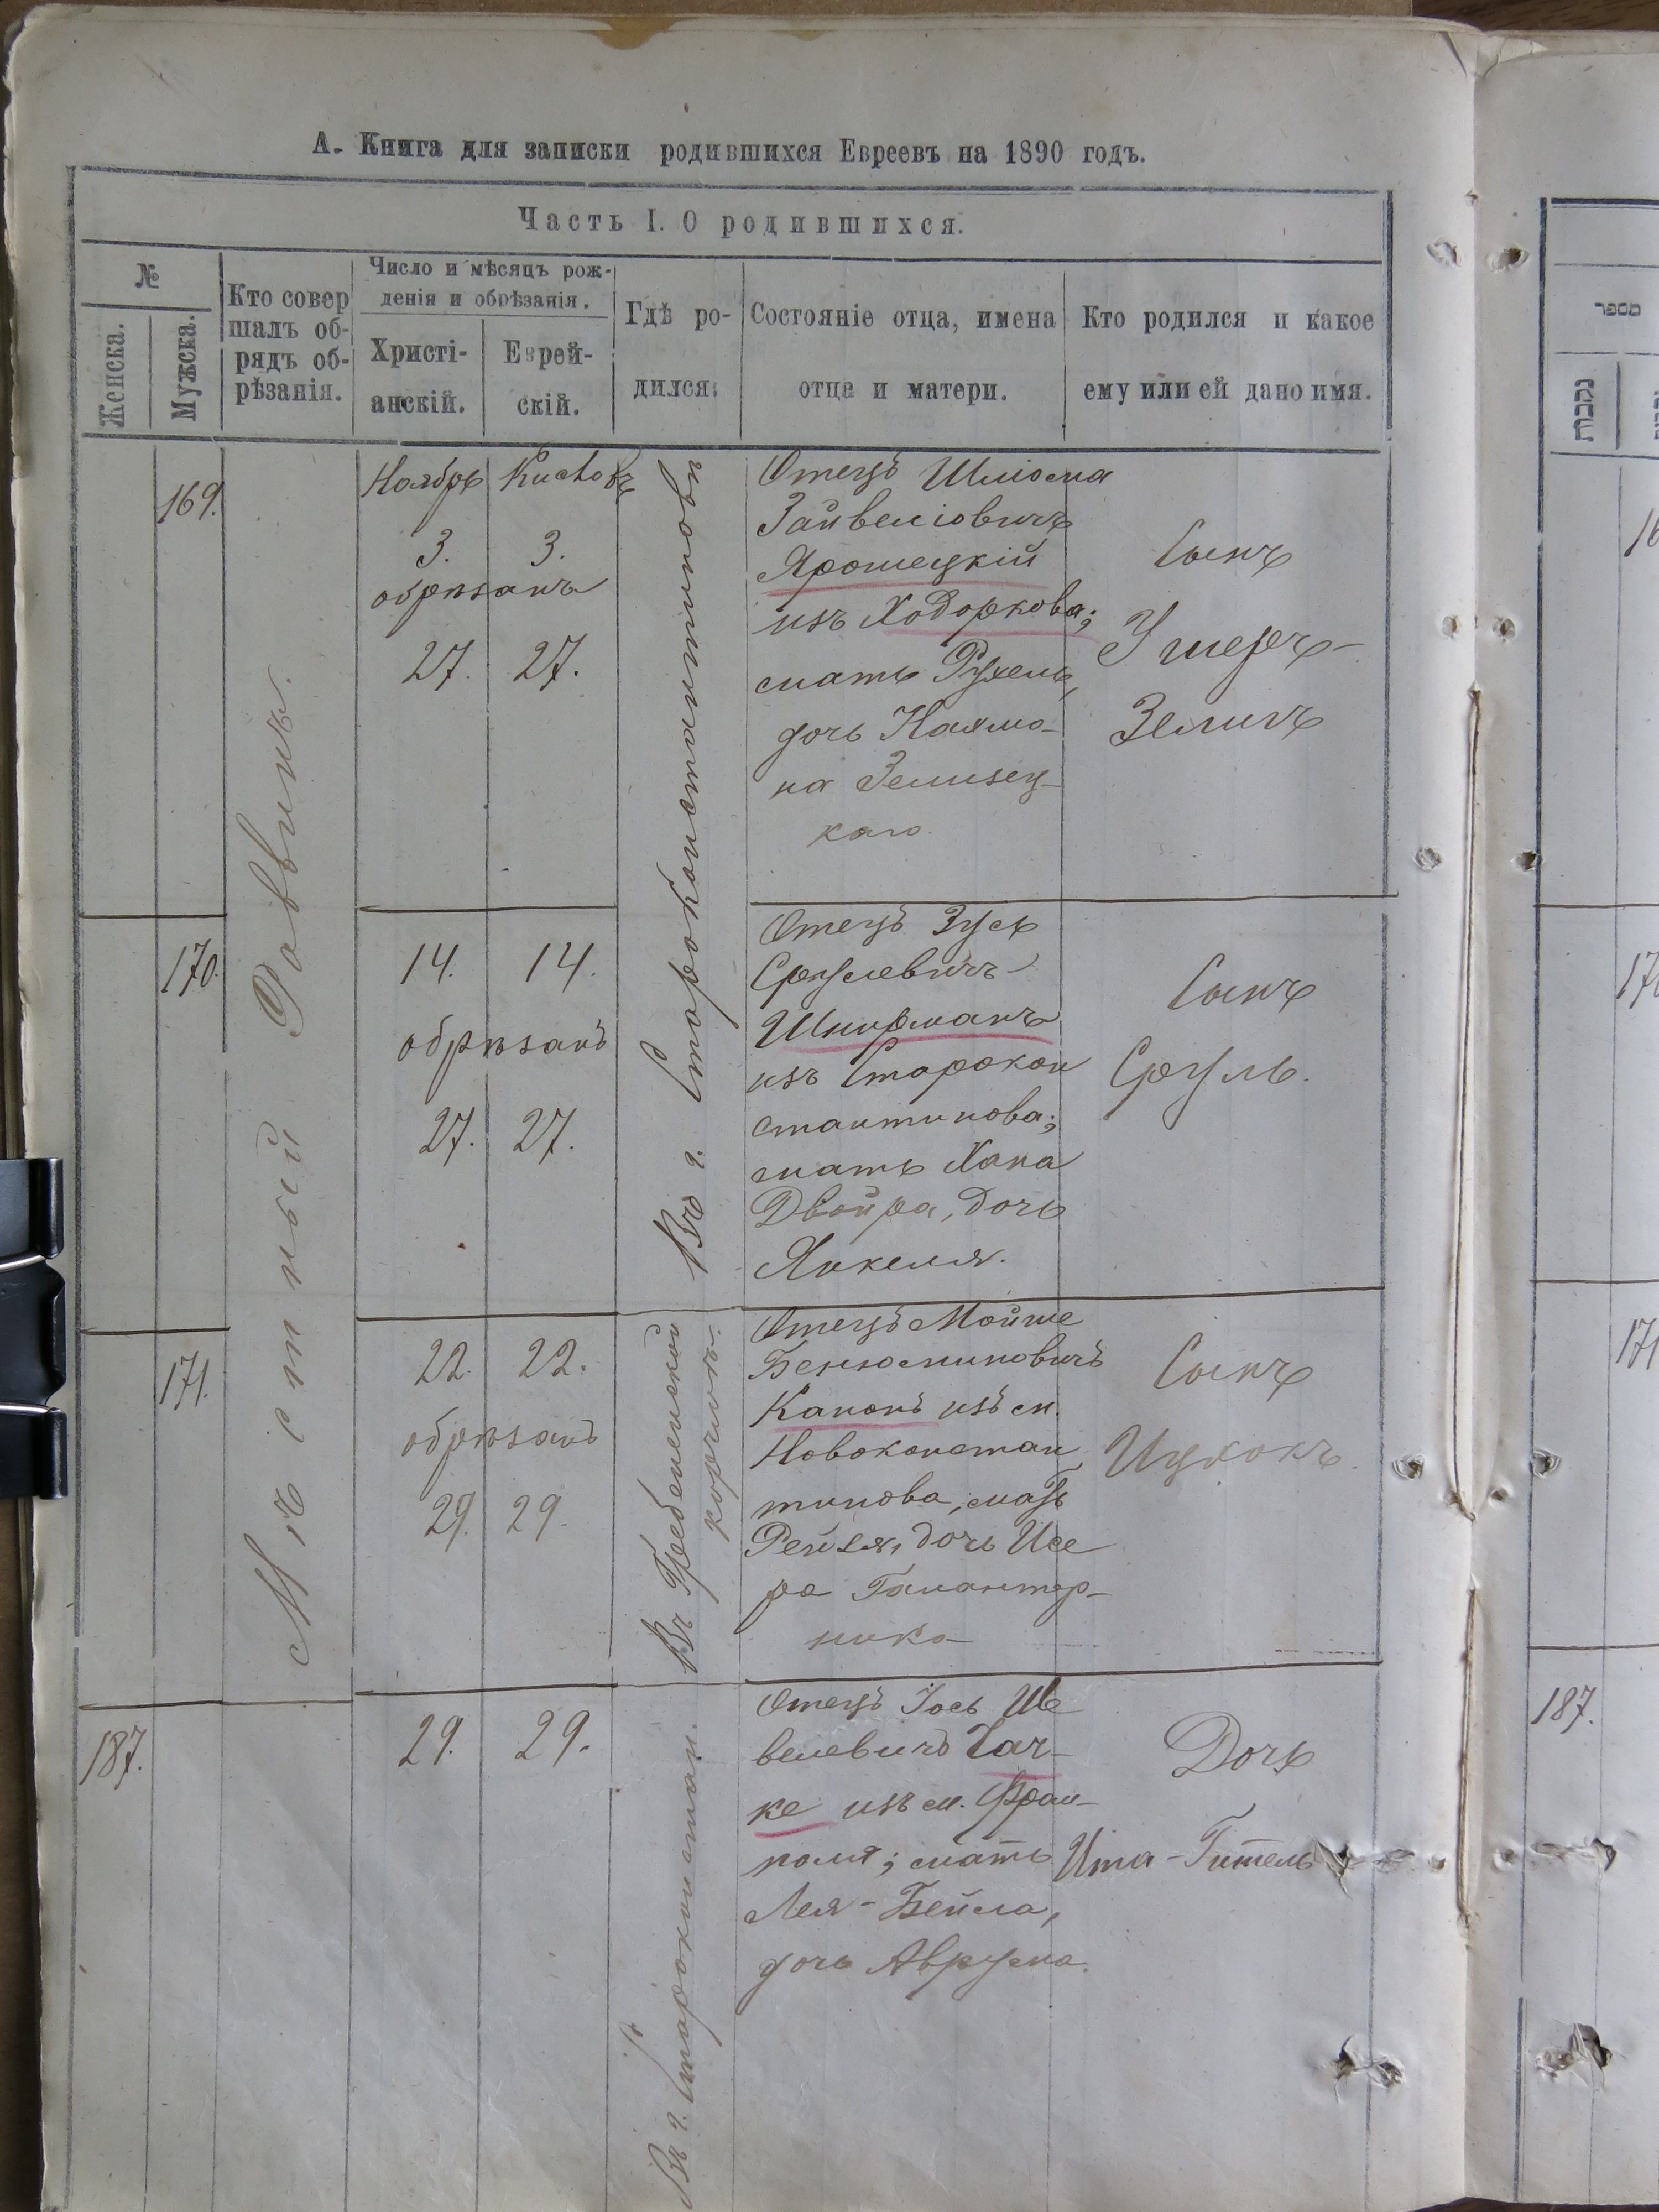 А. Книга для записки родившихся Евреевъ на 1890 годъ.
Часть I. О родившихся.
№
Женска.
Мужска.
Кто совер
шалъ об-
рядъ об-
рѣзанія.
Число и мѣсяцъ рож-
денія и обрѣзанія.
Христі-
анскій.
Еврей-
скій.
Гдѣ ро-
дился:
Состояніе отца, имена
отца и матери.
Кто родился и какое
ему или ей дано имя.
Мѣстный Раввинъ.
169.
Ноябрь
3.
3.
обрѣзанъ
27.
27.
Въ г. Староконстантиновѣ
Отецъ Шліома
Зайвеліовичъ
Ярошецкій
изъ Ходоркова;
мать Рухель,
дочь Нахма-
на
каго
Сынъ
Ушеръ-
Зелигъ
170.
14.
14.
обрѣзанъ
27.
27.
Отецъ Зусь
Срулевичъ
Шнирманъ
изъ Старокон
стантинова;
мать Хана
Двойра, дочь
Янкеля.
Сынъ
Сруль.
171.
22.
22.
обрѣзанъ
29.
29.
Въ
корчмѣ.
Отецъ Мойше
Бенюминовичъ
Капонъ изъ м.
Новоконстан
тинова, мать
Рейзя, дочь Исе
ра Галантер-
ника
Сынъ
Ицхокъ.
187.
29.
29.
Въ г. Староконстан.
Отецъ Іось
велевичъ
ке изъ м. Фрам-
поля; мать
Лея-Бейла,
дочь Аврума.
Дочь
Ита-Гитель
מספר
נקבות
187.